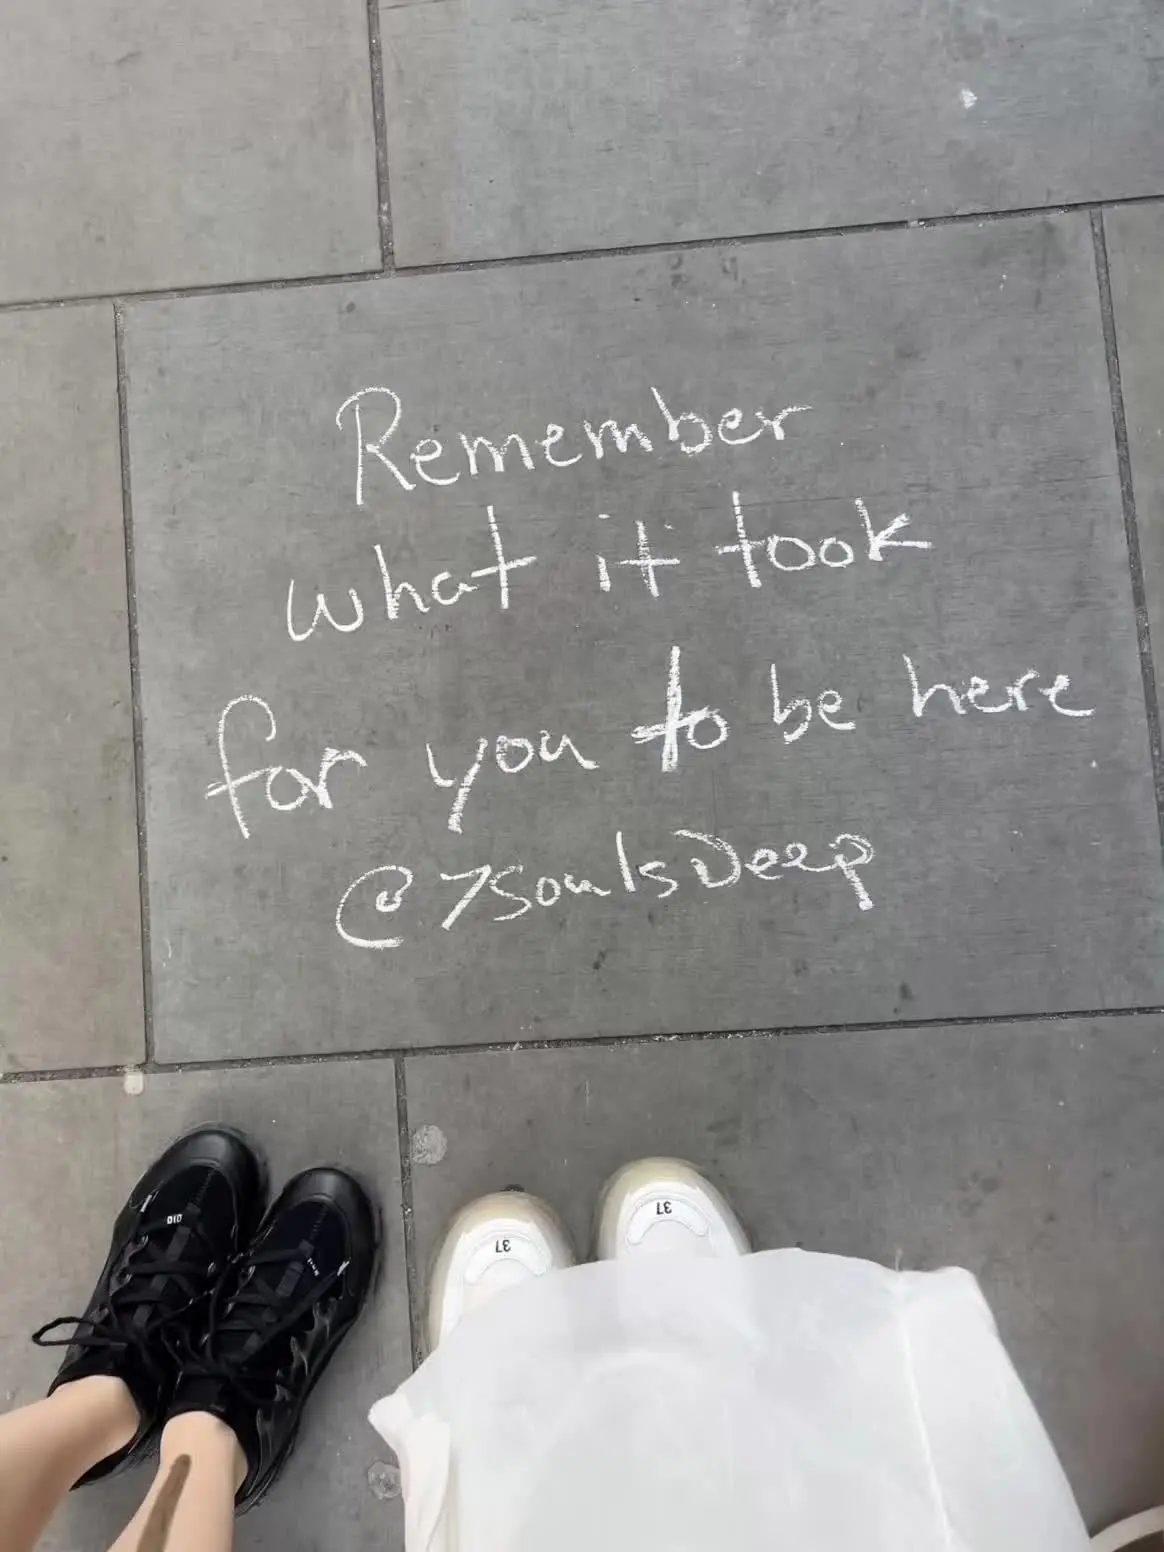 Remember
what it took
for you to be here
@7soulsDeep
010
37
37